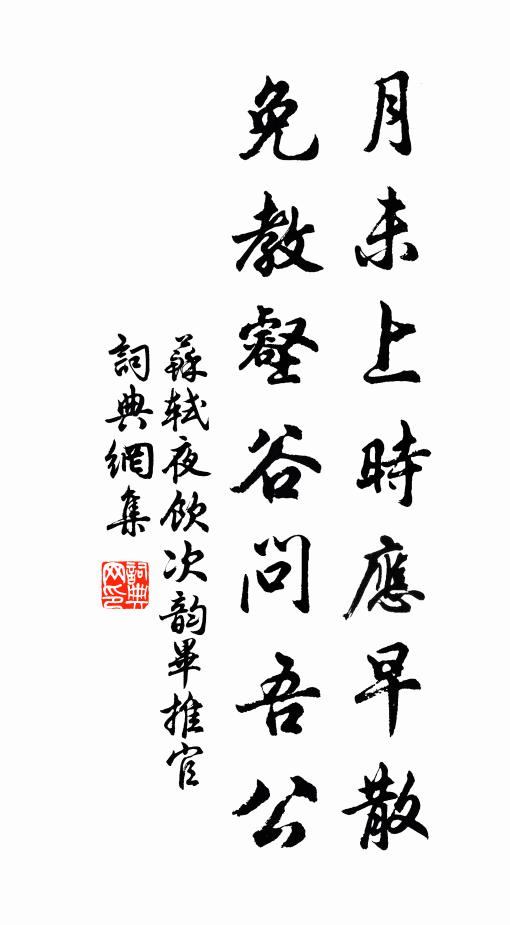 月未上時應早散
免教壑谷問吾公
蘇軾夜飲次韵畢推官
詞典網集
詞典网印